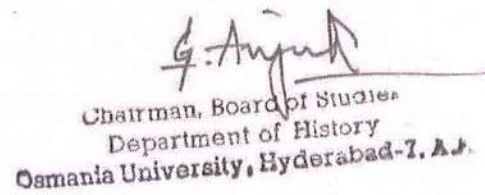 Chairman, Board of Studies
Department of History
Osmania University, Hyderabad-7, A.P.